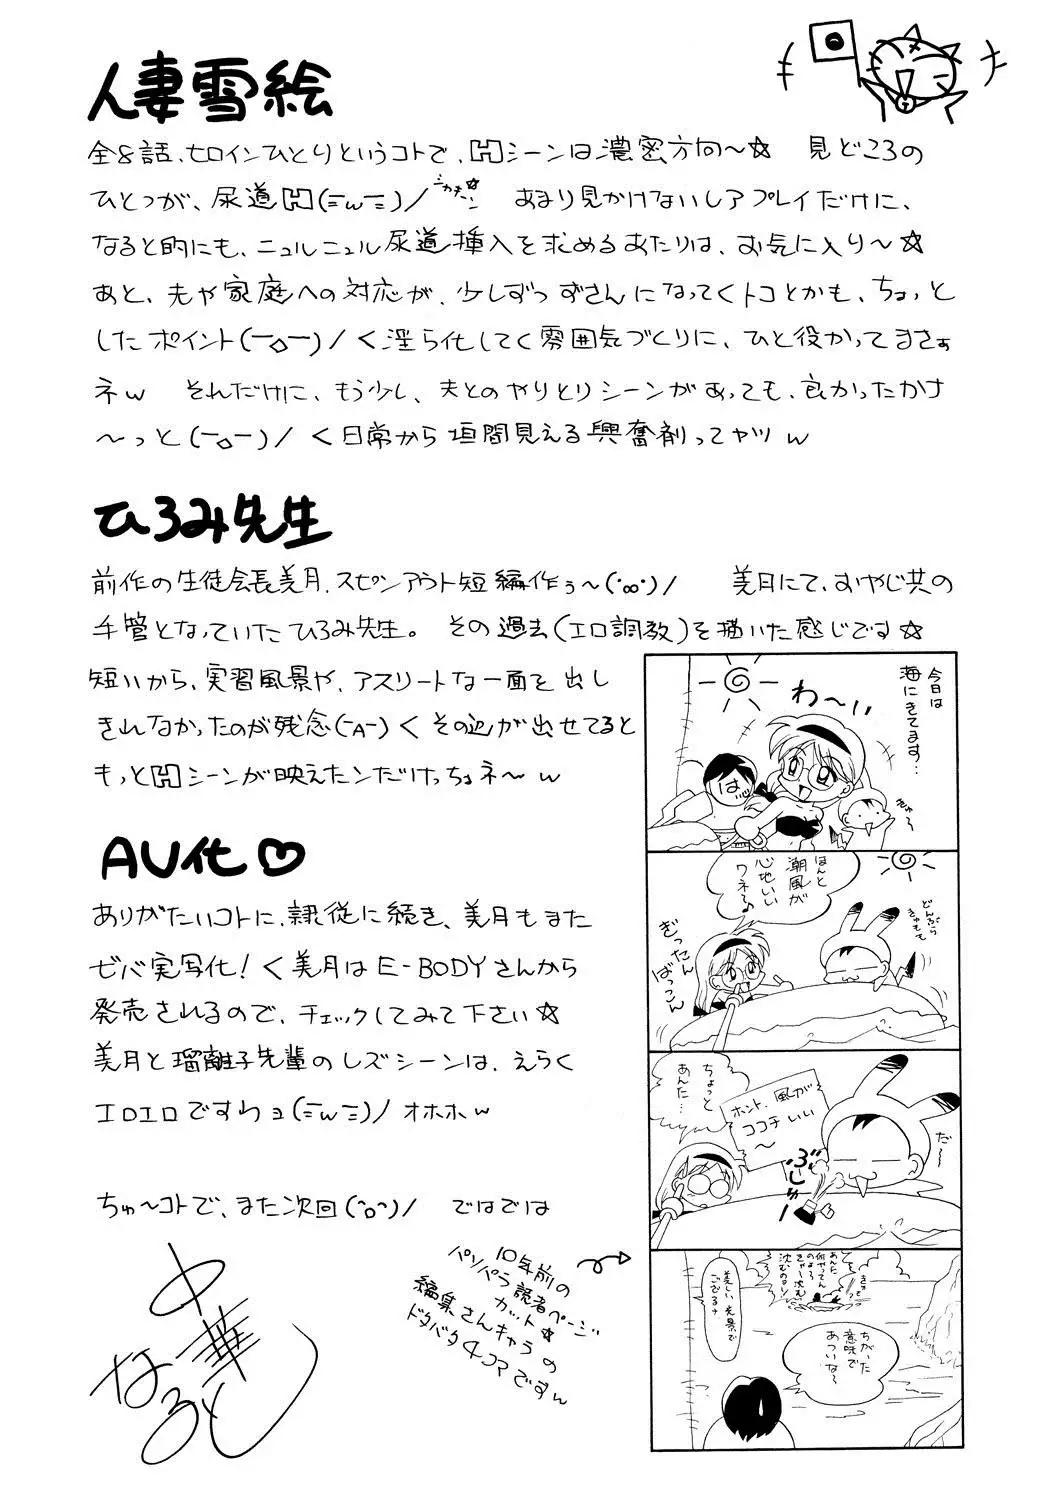 人妻雪絵
全8話、ヒロインひとりというコトで、Hシーンは濃密方向～☆ 見どころの
ひとつが、尿道H(ﾐωﾐ)/ あまり見かけないレアプレイだけに、
なると的にも、ニュルニュル尿道挿入を求めるあたりは、お気に入り～☆
あと、夫や家庭への対応が、少しずつずさんになってくトコとかも、ちょっと
したポイント(￣△￣)/く淫ら化してく雰囲気づくりに、ひと役かってまさぁ
ネw それだけに、もう少し、夫とのやりとりシーンがあっても、良かったかナ
～っと(￣△￣)/く日常から垣間見える興奮剤ってヤツw
ひろみ先生
前作の生徒会長美月、スピンアウト短編作ぅ～(･ω･)/ 美月にて、おやじ共の
手管となっていたひろみ先生。その過去(エロ調教)を描いた感じです☆
短いから、実習風景や、アスリートな一面を出し
きれなかったのが残念(-A-)くその辺が出せてると
もっとHシーンが映えたンだけっちょネ～w
AV化♡
ありがたいコトに、隷従に続き、美月もまた
ゼバ実写化!く美月はE-BODYさんから
発売されるので、チェックしてみて下さい☆
美月と瑠離子先輩のレズシーンは、えらく
エロエロですわョ(ﾐωﾐ)/オホホw
ちゅ～コトで、また次回(^o^)/ ではでは
中華
なると
10年前の
パソパラ読者ページ
カット☆
編集さんキャラの
ドタバタ4コマですw
今日は
海にきてます…
わ～い
は
きゅ～
ほんと
潮風が
心地いい
ワネ～♪
どんぶら
きゅもも
ぎったん
ばっこん
ちょっと
あんた…
ホント、風が
ココチいい
～
ぶしゅー!
だ～
あんた
何やってん
のよ～
きゃー沈む
沈むのヨ～
美しい光景で
ござるナ
ちがった
意味で
あついな～